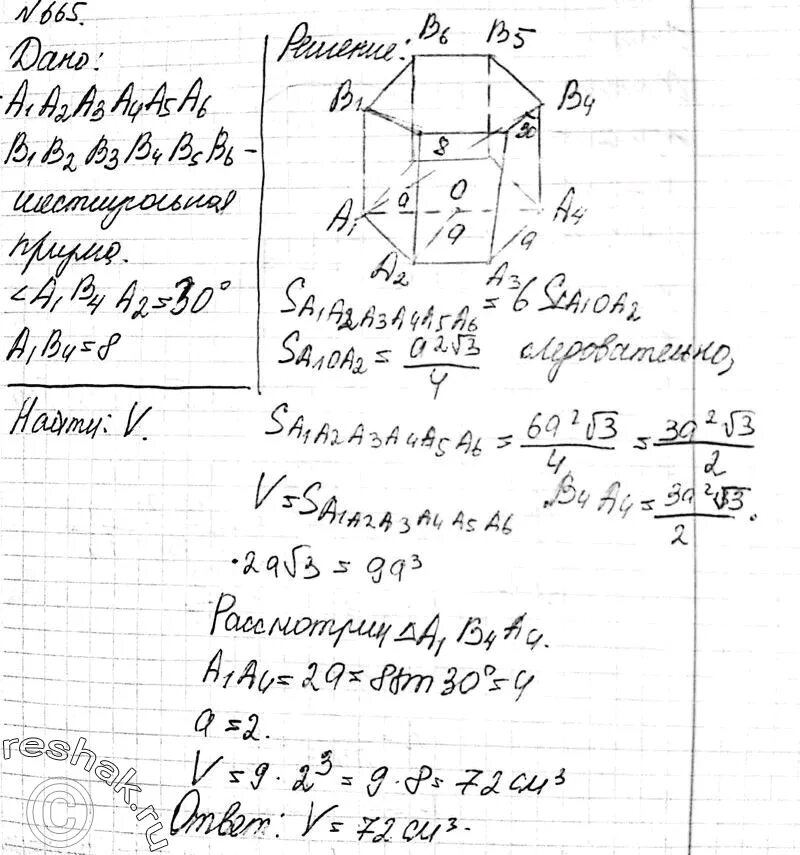 №665.
Дано:
A₁A₂A₃A₄A₅A₆
B₁B₂B₃B₄B₅B₆ -
шестиугольная
призма.
∠A₁B₄A₂=30°
A₁B₄=8
Найти: V.
Решение:
B₆ B₅
B₁ B₄
30
8
a O
A₁ A₄
a a
A₂ A₃
S A₁A₂A₃A₄A₅A₆ = 6 S A₁OA₂
S A₁OA₂ = a²√3/4 следовательно,
S A₁A₂A₃A₄A₅A₆ = 6a²√3/4 = 3a²√3/2
V = S A₁A₂A₃A₄A₅A₆ · B₄A₄ = 3a²√3/2 ·
· 2a√3 = 9a³
Рассмотрим △A₁B₄A₄.
A₁A₄ = 2a = 8sin30° = 4
a = 2.
V = 9 · 2³ = 9 · 8 = 72 см³
Ответ: V = 72 см³.
reshak.ru
©